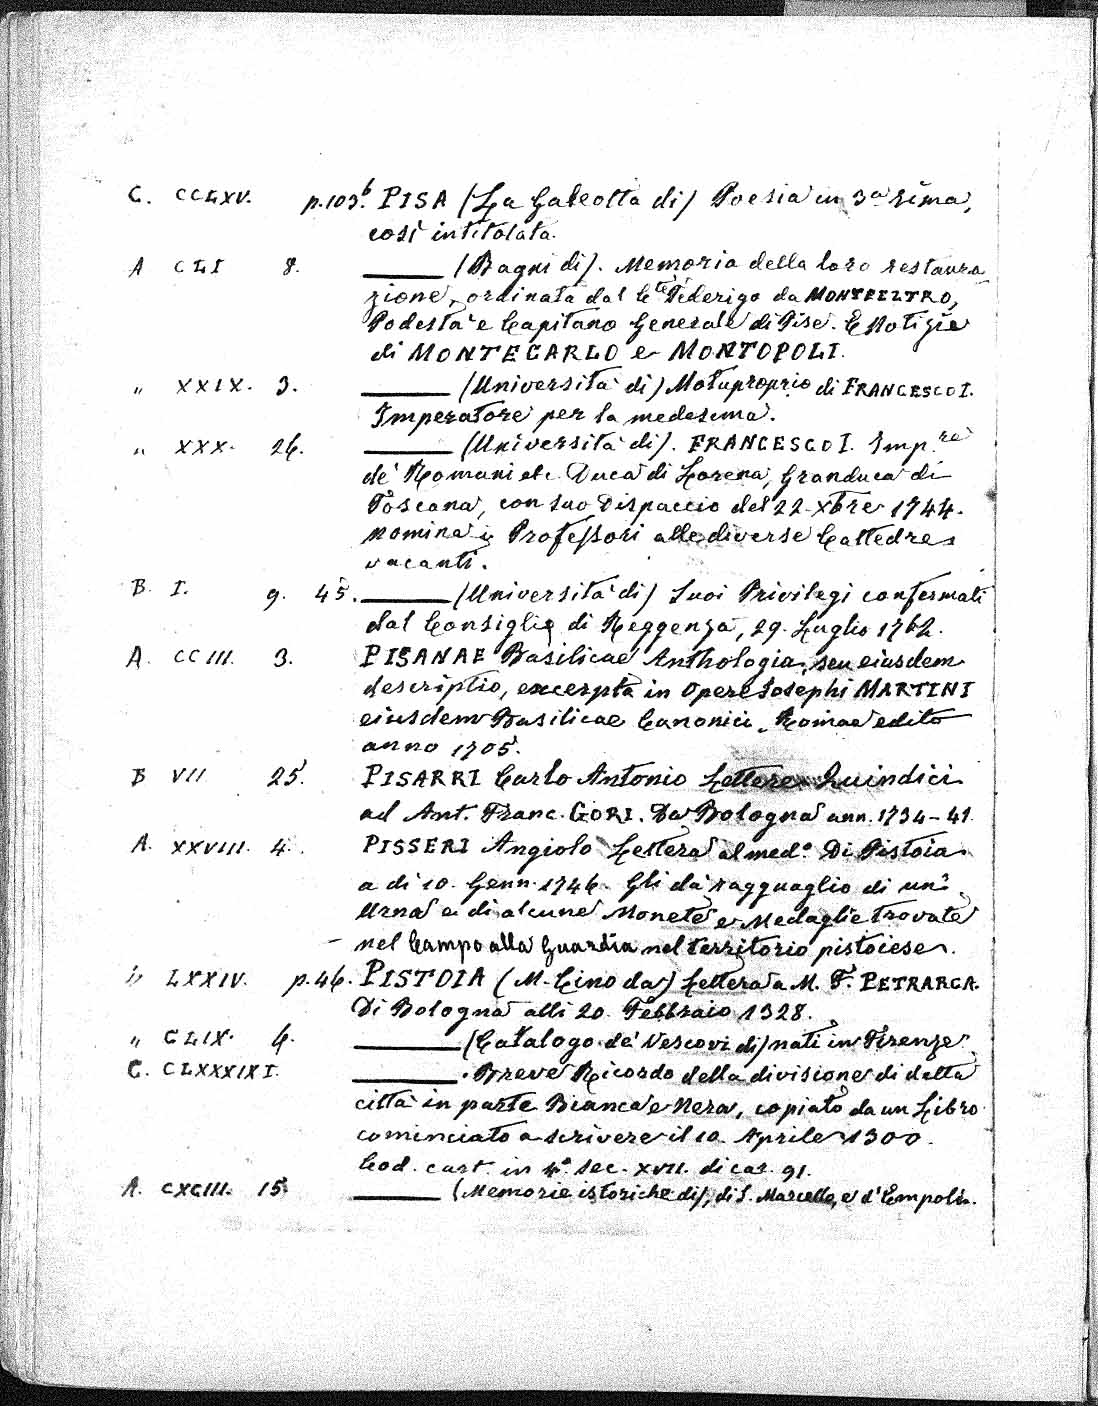 C. CCLXV. p. 103.b PISA (La Galeotta di) Poesia in 3a rima,
così intitolata.
A CLI 8. ——— (Bagni di). Memoria della loro restaura
zione, ordinata dal Cte Federigo da MONTEFELTRO,
Podestà e Capitano Generale di Pise. E Notizie
di MONTECARLO e MONTOPOLI.
" XXIX. 3. ——— (Università di) Motuproprio di FRANCESCO I.
Imperatore per la medesima.
" XXX. 26. ——— (Università di). FRANCESCO I. Imp.re
de' Romani etc. Duca di Lorena, Granduca di
Toscana, con suo Dispaccio del 22 Xbre 1744.
nomina i Professori alle diverse Cattedre
vacanti.
B. I. 9. 45. ——— (Università di) Suoi Privilegi confermati
dal Consiglio di Reggenza, 29. Luglio 1762.
A. CCIII. 3. PISANAE Basilicae Anthologia, seu eiusdem
descriptio, excerpta in Opere Iosephi MARTINI
eiusdem Basilicae Canonici. Romae edito
anno 1705.
B VII 25. PISARRI Carlo Antonio Lettere Quindici
ad Ant. Franc. GORI. Da Bologna ann. 1734-41.
A. XXVIII. 4. PISSERI Angiolo Lettera al med.o Di Pistoia
a dì 10. Genn. 1746. Gli dà ragguaglio di un'
Urna e di alcune Monete e Medaglie trovate
nel Campo alla Guardia nel territorio pistoiese.
" LXXIV. p. 46. PISTOIA (M. Cino da) Lettera a M. F. PETRARCA.
Di Bologna alli 20. Febbraio 1328.
" CLIX. 6. ——— (Catalogo de' Vescovi di) nati in Firenze
C. CLXXXIXI. ———. Breve Ricordo della divisione di detta
città in parte Bianca e Nera, copiato da un Libro
cominciato a scrivere il 10. Aprile 1300.
Cod. cart. in 4.o sec. XVII. di car. 91.
A. CXCIII. 15. ——— (Memorie istoriche di), di S. Marcello, e d'Empoli.